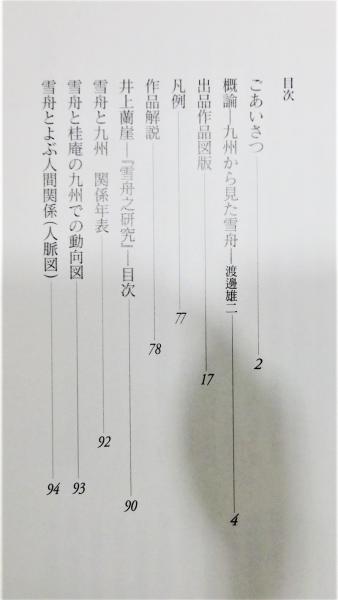 目次
ごあいさつ 2
概論―九州から見た雪舟―渡邊雄二 4
出品作品図版 17
凡例 77
作品解説 78
井上蘭崖―『雪舟之研究』―目次 90
雪舟と九州 関係年表 92
雪舟と桂庵の九州での動向図 93
雪舟とよぶ人間関係(人脈図) 94